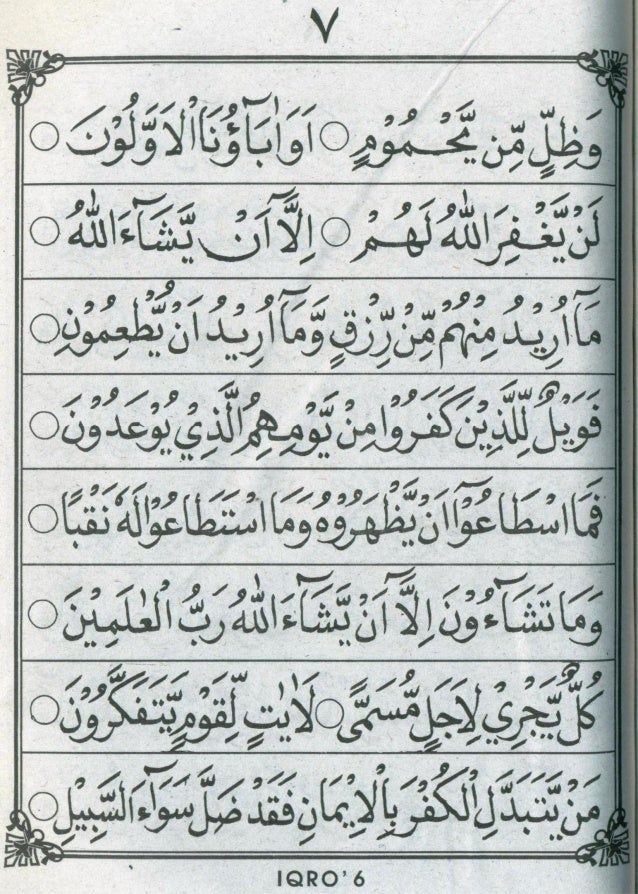 ٧
وَظِلٍّ مِّنْ يَّحْمُوْمٍ ○ اَوَاٰبَآؤُنَا الْاَوَّلُوْنَ ○
لَنْ يَّغْفِرَ اللّٰهُ لَهُمْ ○ اِلَّآ اَنْ يَّشَآءَ اللّٰهُ ○
مَآ اُرِيْدُ مِنْهُمْ مِّنْ رِّزْقٍ وَّمَآ اُرِيْدُ اَنْ يُّطْعِمُوْنِ ○
فَوَيْلٌ لِّلَّذِيْنَ كَفَرُوْا مِنْ يَّوْمِهِمُ الَّذِيْ يُوْعَدُوْنَ ○
فَمَا اسْطَاعُوْٓا اَنْ يَّظْهَرُوْهُ وَمَا اسْتَطَاعُوْا لَهٗ نَقْبًا ○
وَمَا تَشَآءُوْنَ اِلَّآ اَنْ يَّشَآءَ اللّٰهُ رَبُّ الْعٰلَمِيْنَ ○
كُلٌّ يَّجْرِيْ لِاَجَلٍ مُّسَمًّى ○ لَاٰيٰتٍ لِّقَوْمٍ يَّتَفَكَّرُوْنَ ○
مَنْ يَّتَبَدَّلِ الْكُفْرَ بِالْاِيْمَانِ فَقَدْ ضَلَّ سَوَآءَ السَّبِيْلِ ○
IQRO' 6